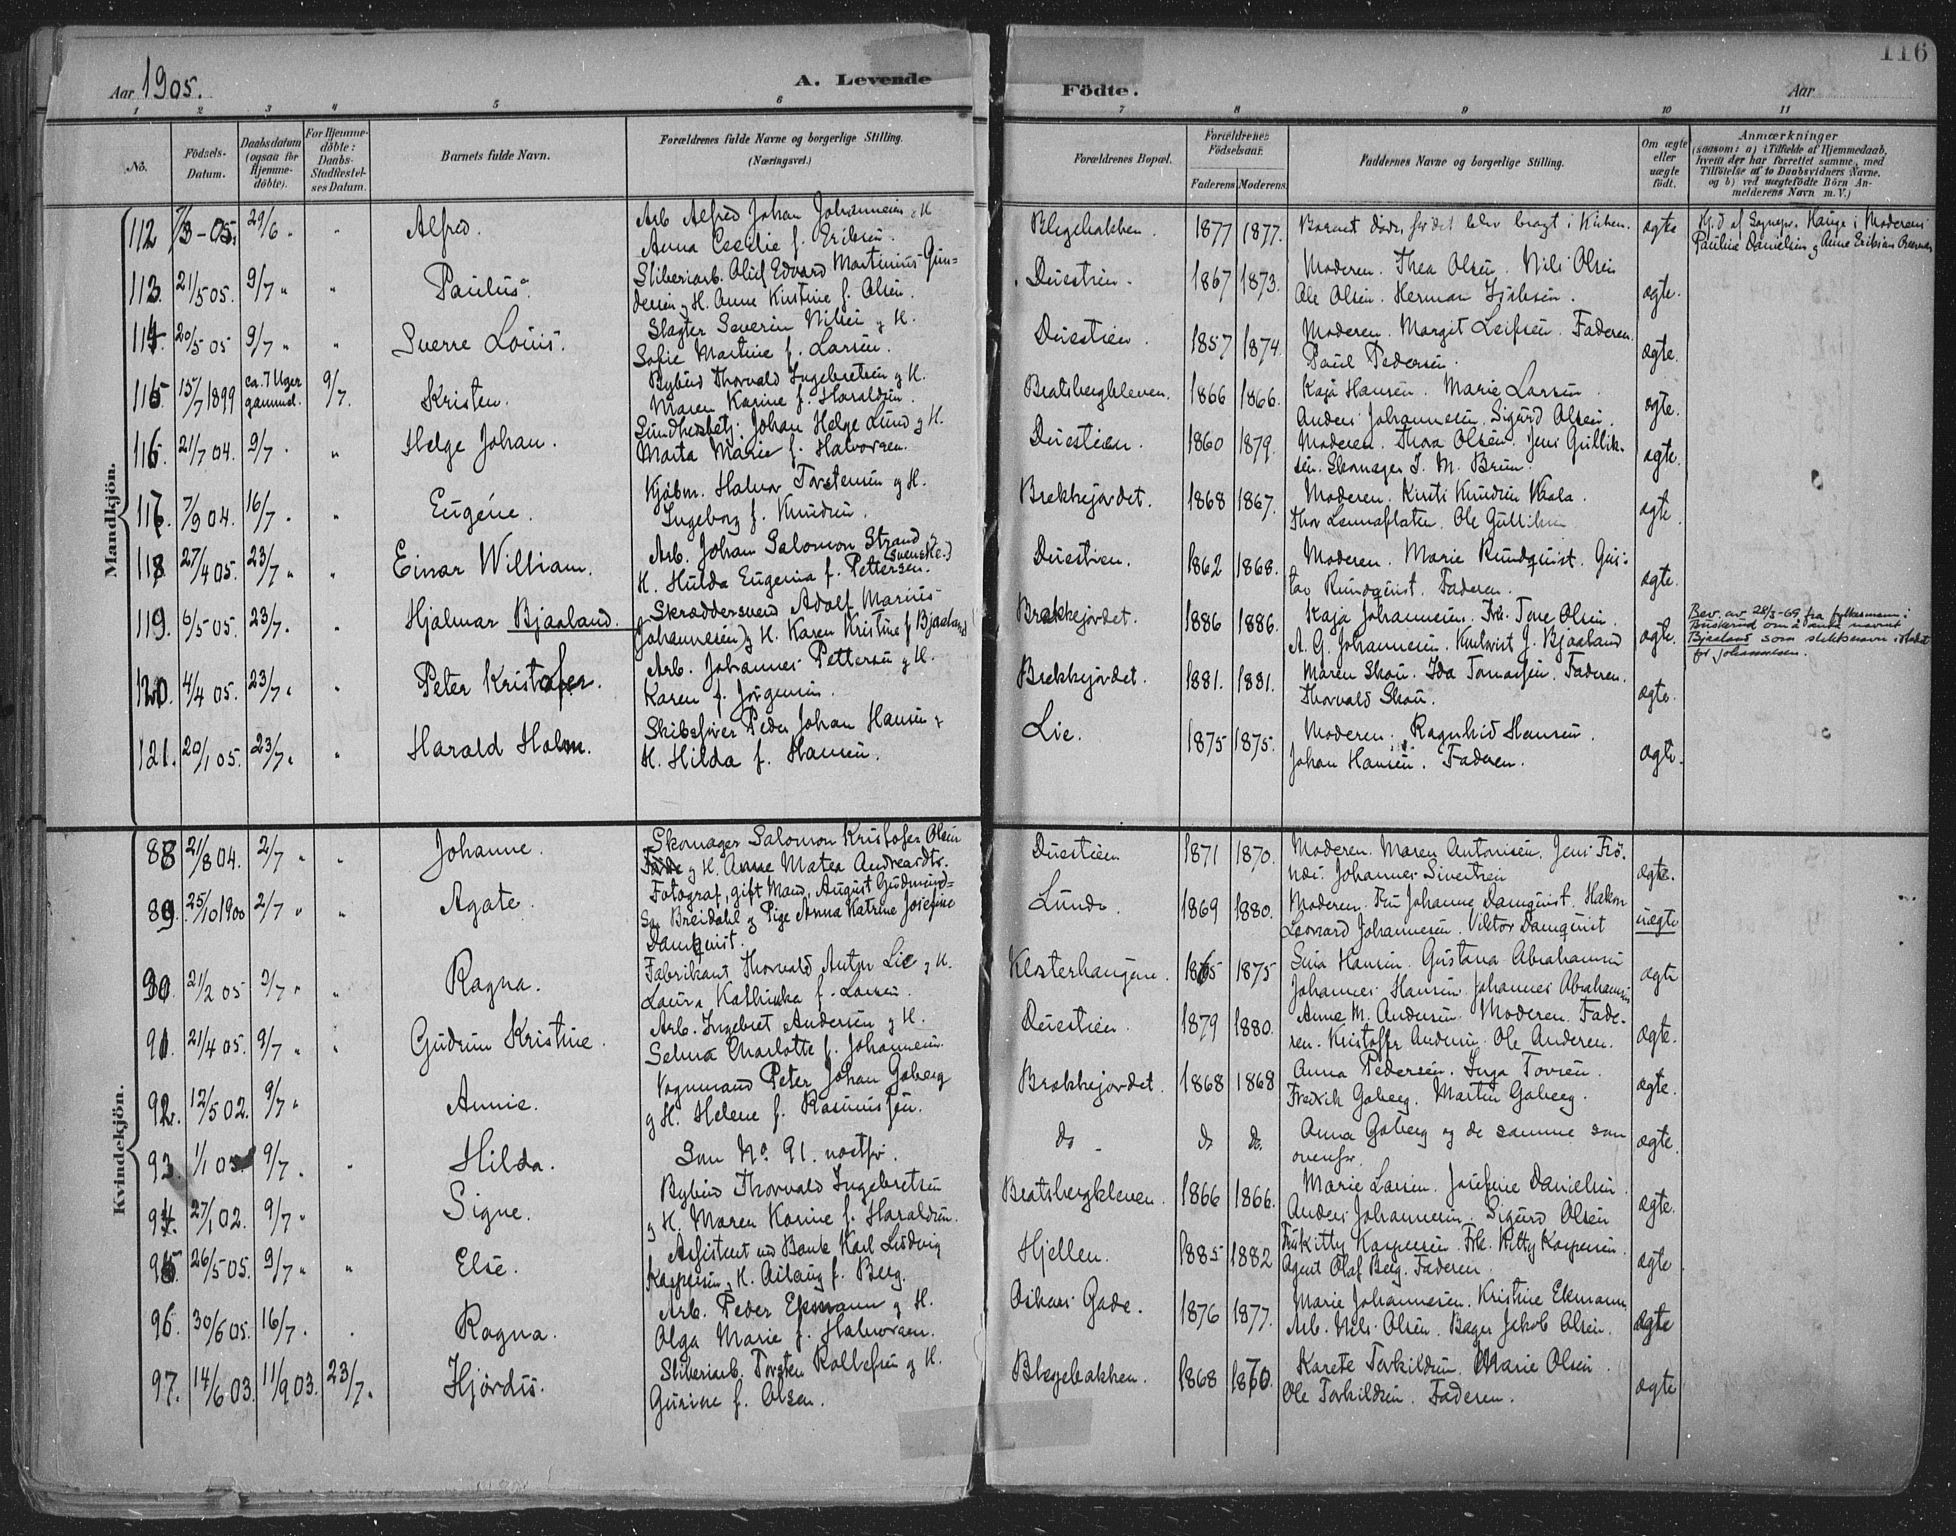 116
Aar 1905. A. Levende Födte. Aar
1 2 3 4 5 6 7 8 9 10 11
No. Födsels-Datum. Daabsdatum (ogsaa for Hjemme-döbte). For Hjemme-döbte: Daabs-Stadfæstel-ses Datum. Barnets fulde Navn. Forældrenes fulde Navne og borgerlige Stilling. (Næringsvei.) Forældrenes Bopæl. Forældrenes Födselsaar. Faderens Moderens Faddernes Navne og borgerlige Stilling. Om ægte eller uægte födt. Anmærkninger (saasom: a) i Tilfælde af Hjemmedaab, hvem der har forrettet samme, med Tilföielse af to Daabsvidners Navne, og b) ved uægtefödte Börn An-melderens Navn m. V.)
Mandkjön.
112 7/3-05. 29/6 " " Alfred. Arb. Alfred Johan Johannesen & H. Anna Cecilie f. Eriksen. Blegebakken. 1877 1877. Barnet döde, för det blev bragt i Kirken. ægte Hj.d. af Sognepr. Hauge i Moderens Pauline Danielsen & Anne Eriksen
113. 21/5 05. 9/7 " " Paulus. Sliberiarb. Oluf Edvard Martinius Gun-
dersen & H. Anne Kirstine f. Olsen. Duestien. 1867 1873. Moderen. Thea Olsen. Nils Olsen
Ole Olsen. Herman ægte.
114. 20/5 05 9/7 " " Sverre Louis. Slagter Severin Nilsen & H.
Sofie Martine f. Larsen. Duestien. 1857 1874. Moderen. Margit Leifsen. Faderen.
Paul Pedersen. ægte.
115 15/7 1899 ca. 7 Uger gammel. 9/7. Kristen. Bybud Thorvald Ingebretsen & H.
Maren Karine f. Haraldsen. Bratsbergkleven. 1866 1866. Kaja Hansen. Marie Larsen
Anders Johannesen. Sigurd Olsen. ægte.
116. 21/7 04. 9/7. " Helge Johan. Sundhedsbetj. Johan Helge Lund & H.
Marta Marie f. Halvorsen. Duestien. 1860 1879. Moderen. Thora Olsen. Jens Gullik-
sen. Skomager J. M. Bruun. ægte.
117. 7/9 04. 16/7. " Eugéne. Kjöbm. Halvor Torstensen & H.
Ingeborg f. Knudsen. Brekkejordet. 1868 1867. Moderen. Kirsti Knudsen Vaala.
Thor Lemaflaten. Ole Gulliksen ægte
118. 27/4 05. 23/7 " " Einar William. Arb. Johan Salomon Strand &
H. Hulda Eugenia f. Pettersen. (svenske.) Duestien. 1862 1868. Moderen. Marie Rundquist. Gus-
tav Rundquist. Faderen. ægte.
119. 6/5 05. 23/7. " Hjalmar Bjaaland. Skræddersvend Adolf Marius
Johannesen & H. Karen Kristine f. Bjaaland Brekkejordet. 1886 1886. Kaja Johannesen. Frk. Tone Olsen.
A. G. Johannesen. J. Bjaaland ægte. Bev. av 28/3-69 fra fylkesmann i
Buskerud om å anta navnet
Bjaaland som slektsnavn istedet
for Johannesen.
120. 4/4 05. 23/7. " Peter Kristofer. Arb. Johannes Pettersen & H.
Karen f. Jörgensen. Brekkejordet. 1881. 1881. Maren Skou. Ida Tomassen. Faderen.
Thorvald Skou. ægte.
121. 20/1 05. 23/7. " Harald Holm. Skibsförer Peder Johan Hansen &
H. Hilda f. Hansen. Lie. 1875 1875. Moderen. Ragnhild Hansen.
Johan Hansen. Faderen. ægte.
Kvindekjön.
88 21/8 04. 2/7 " " Johanne. Skomager Salomon Kristofer Olsen
& H. Anne Matea Andreasdtr. Duestien 1871 1870. Moderen. Maren Antonisen. Jens
Johannes Sivertsen ægte.
89. 25/10 1900 2/7 " " Agate. Fotograf, gift Mand, August Gudmund-
sen Breidahl & Pige Anna Katrine Josefine
Damquist. Lunde 1869 1880. Moderen. Fru Johanne Damquist. Hakon
Leonard Johannesen. Viktor Damquist uægte
90. 21/2 05 2/7 " " Ragna. Fabrikant Thorvald Anton Lie & H.
Laura Kathinka f. Larsen. Klosterhaugene. 1865 1875 Sina Hansen. Gustava Abrahamsen
Johannes Hansen. Johannes Abrahamsen ægte
91. 21/4 05. 9/7 " " Gudrun Kristine. Arb. Ingebret Andersen & H.
Selma Charlotte f. Johannesen. Duestien. 1879 1880. Anne M. Andersen. Moderen. Fade-
ren. Kristoffer Andersen. Ole Andersen. ægte.
92. 12/5 02. 9/7 " Annie. Vognmand Peter Johan Gaberg
& H. Helene f. Rasmussen. Brekkejordet. 1868 1868 Anna Pedersen. Inga Tovsen.
Fredrik Gaberg. Martin Gaberg. ægte.
93. 1/1 05 9/7. " Hilda. Som No. 91. nestfr. do - do do. Anna Gaberg og de samme som
ovenfr. ægte.
94. 27/1 02. 9/7 " Signe. Bybud Thorvald Ingebretsen
& H. Maren Karine f. Haraldsen. Bratsbergkleven. 1866 1866. Marie Larsen. Josefine Danielsen.
Anders Johannesen. Sigurd Olsen ægte.
95. 26/5 05. 9/7 " " Else. Assistent ved Bank Karl Ludvig
Kaspersen & H. Aslaug f. Berg. Hjellen. 1885 1882 Fru Kitty Kaspersen. Frk. Kitty Kaspersen.
Agent Olaf Berg. Faderen. ægte
96. 30/6 05. 16/7. . Ragna. Arb. Peder Ekmann & H.
Olga Marie f. Halvorsen. Oskars Gade. 1876 1877. Marie Johannesen. Kristine Ekmann
Arb. Nils Olsen. Bager Jakob Olsen. ægte
97. 14/6 03. 11/9 03. 23/7. Hjördis. Sliberiarb. Torsten Rollefsen & H.
Gurine f. Olsen. Blegebakken. 1868 1870. Karete Torkildsen. Marie Olsen.
Ole Torkildsen. Faderen. ægte